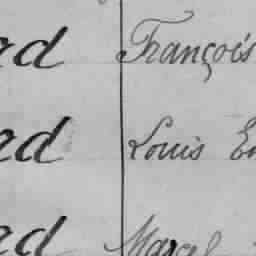 rd François
rd Louis E
rd Marcel